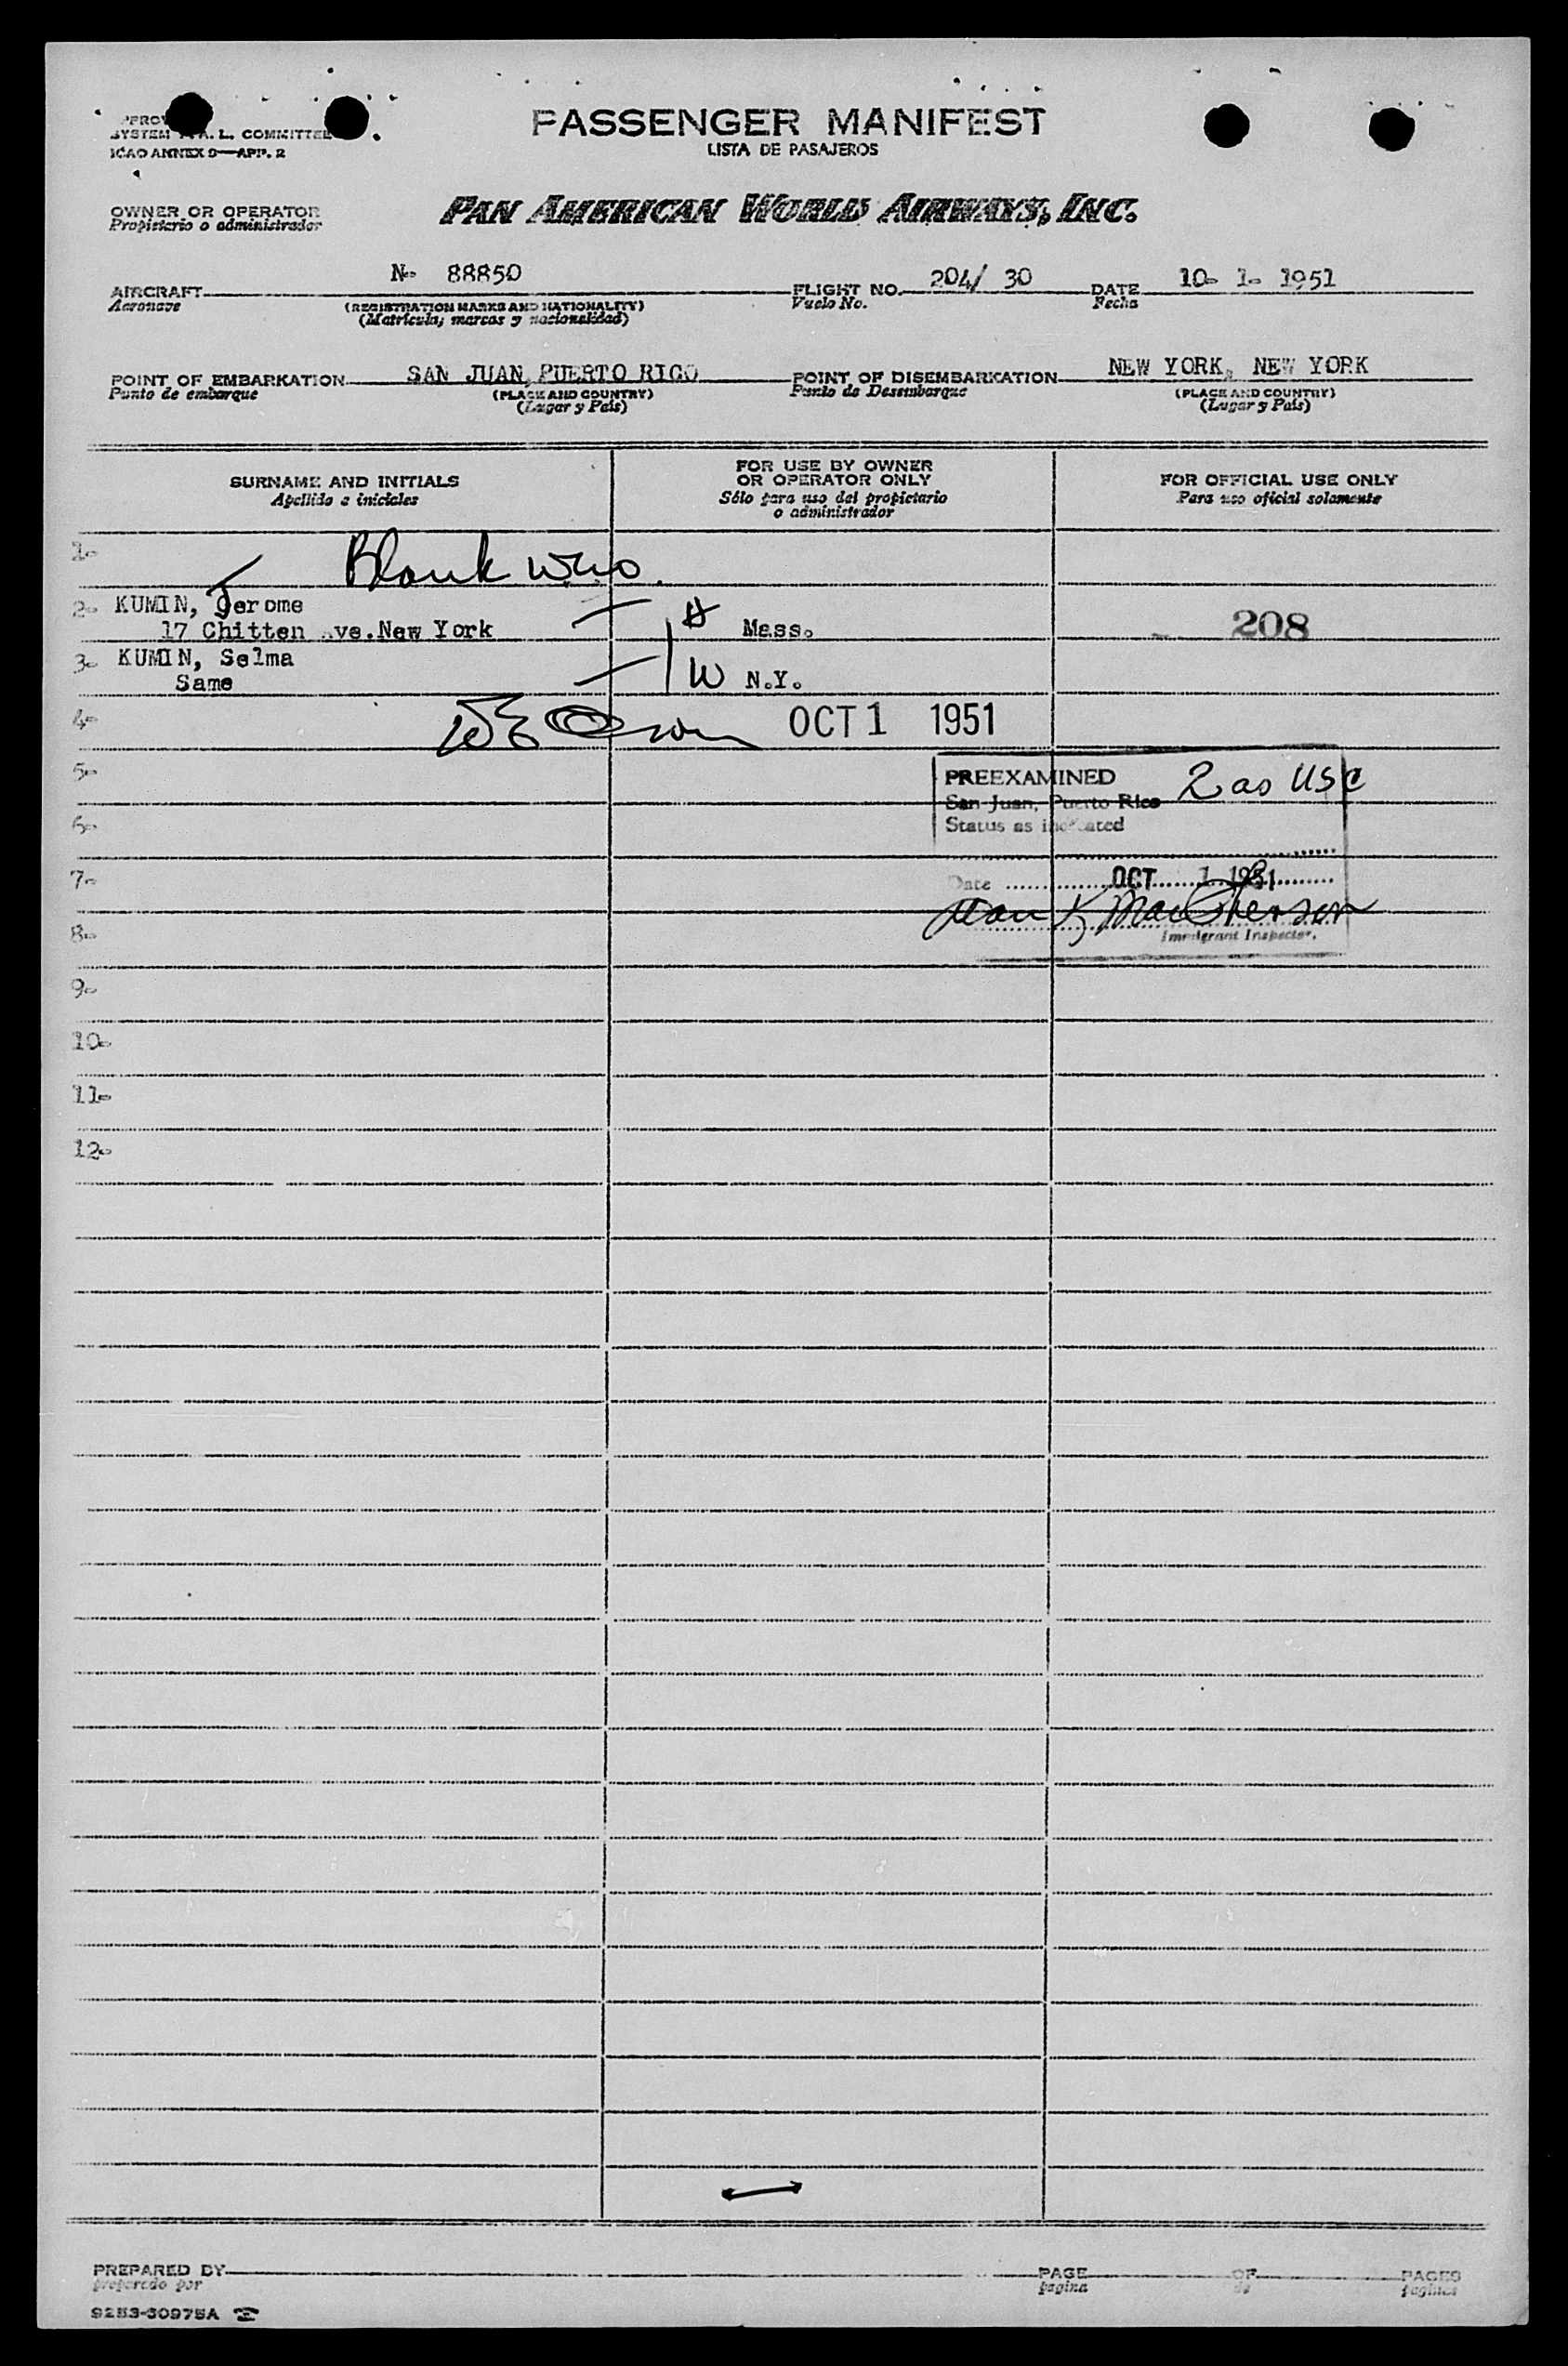 PASSENGER MANIFEST
LISTA DE PASAJEROS
SYSTEM A. L. COMMITTEE
ICAO ANNEX 9—APP. 2
OWNER OR OPERATOR
Propietario o administrador
PAN AMERICAN WORLD AIRWAYS, INC.
AIRCRAFT N- 88850 FLIGHT NO. 204/ 30 DATE 10- 1- 1951
Aeronave (REGISTRATION MARKS AND NATIONALITY) Vuelo No. Fecha
(Matrícula; marcas y nacionalidad)
POINT OF EMBARKATION SAN JUAN, PUERTO RICO POINT OF DISEMBARKATION NEW YORK, NEW YORK
Punto de embarque (PLACE AND COUNTRY) Punto de Desembarque (PLACE AND COUNTRY)
(Lugar y País) (Lugar y País)
SURNAME AND INITIALS
Apellido e iniciales
FOR USE BY OWNER
OR OPERATOR ONLY
Sólo para uso del propietario
o administrador
FOR OFFICIAL USE ONLY
Para uso oficial solamente
1- Blank
2- KUMIN, Jerome
17 Chitten ve. New York H Mass. 208
3- KUMIN, Selma
Same W N.Y.
4- OCT 1 1951
5- PREEXAMINED 2 as USC
San Juan, Puerto Rico
6- Status as indicated
7- Date OCT 1 1951
8- Immigrant Inspector.
9-
10-
11-
12-
PREPARED BY PAGE OF PAGES
preparado por página de páginas
9253-30975A